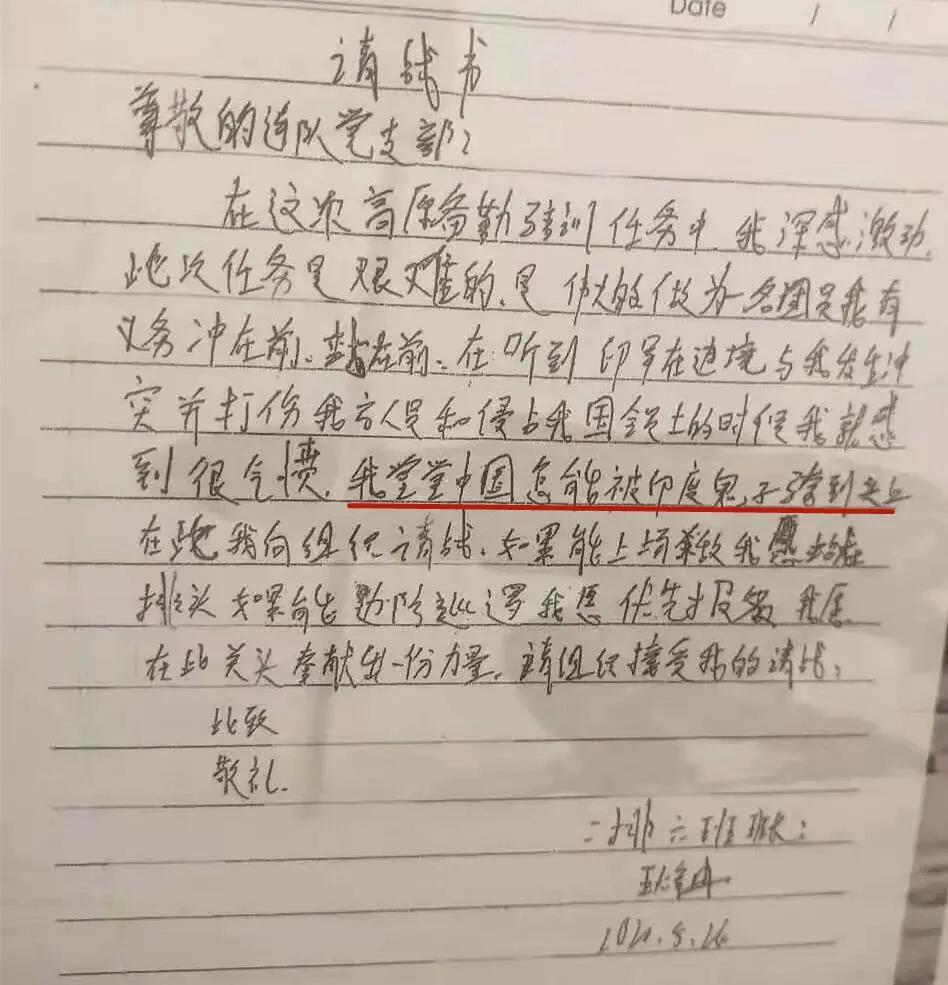 Date / /
请战书
尊敬的连队党支部：
在这次高原备勤驻训任务中，我深感激动，
此次任务是艰难的、是伟大的做为一名团员我有
义务冲在前、站在前、在听到印军在边境与我发生冲
突并打伤我方人员和侵占我国领土的时候我就感
到很气愤，我堂堂中国怎能被印度鬼子
在此我向组织请战、如果能上场杀敌我愿站在
排头如果能边防巡逻我愿优先报名我愿
在此关头奉献出一份力量，请组织接受我的请战，
此致
敬礼.
二排六班班长：